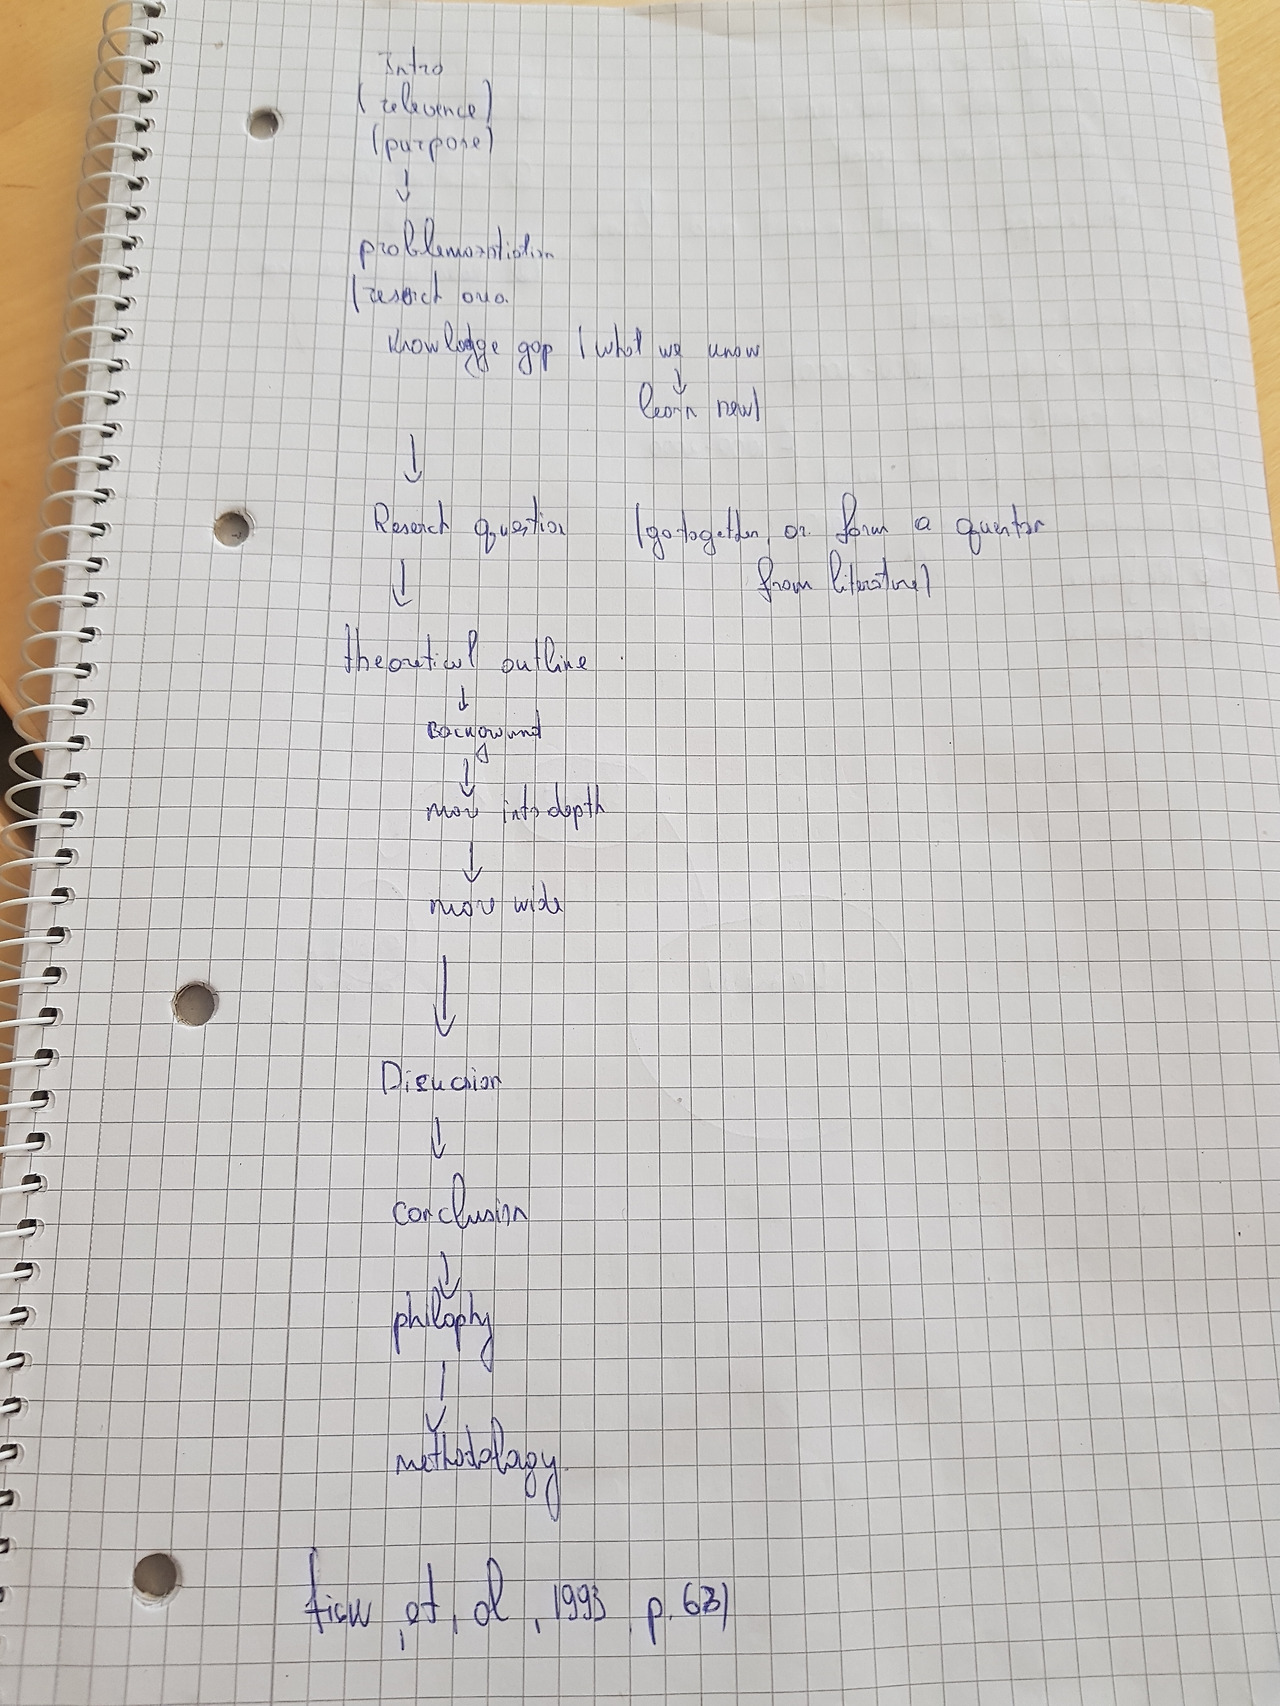 Intro
(relevence)
(purpose)
↓
problemazatiotion
(reserch
knowledge gap (what we know
↓
learn new)
↓
Reserch question (go together, or form a queston
from literature)
↓
theoretical outline
↓
Background
↓
more into depth
↓
more wide
↓
Disucsion
↓
conclusion
↓
philophy
↓
methodology
et, al, 1993, p. 63)